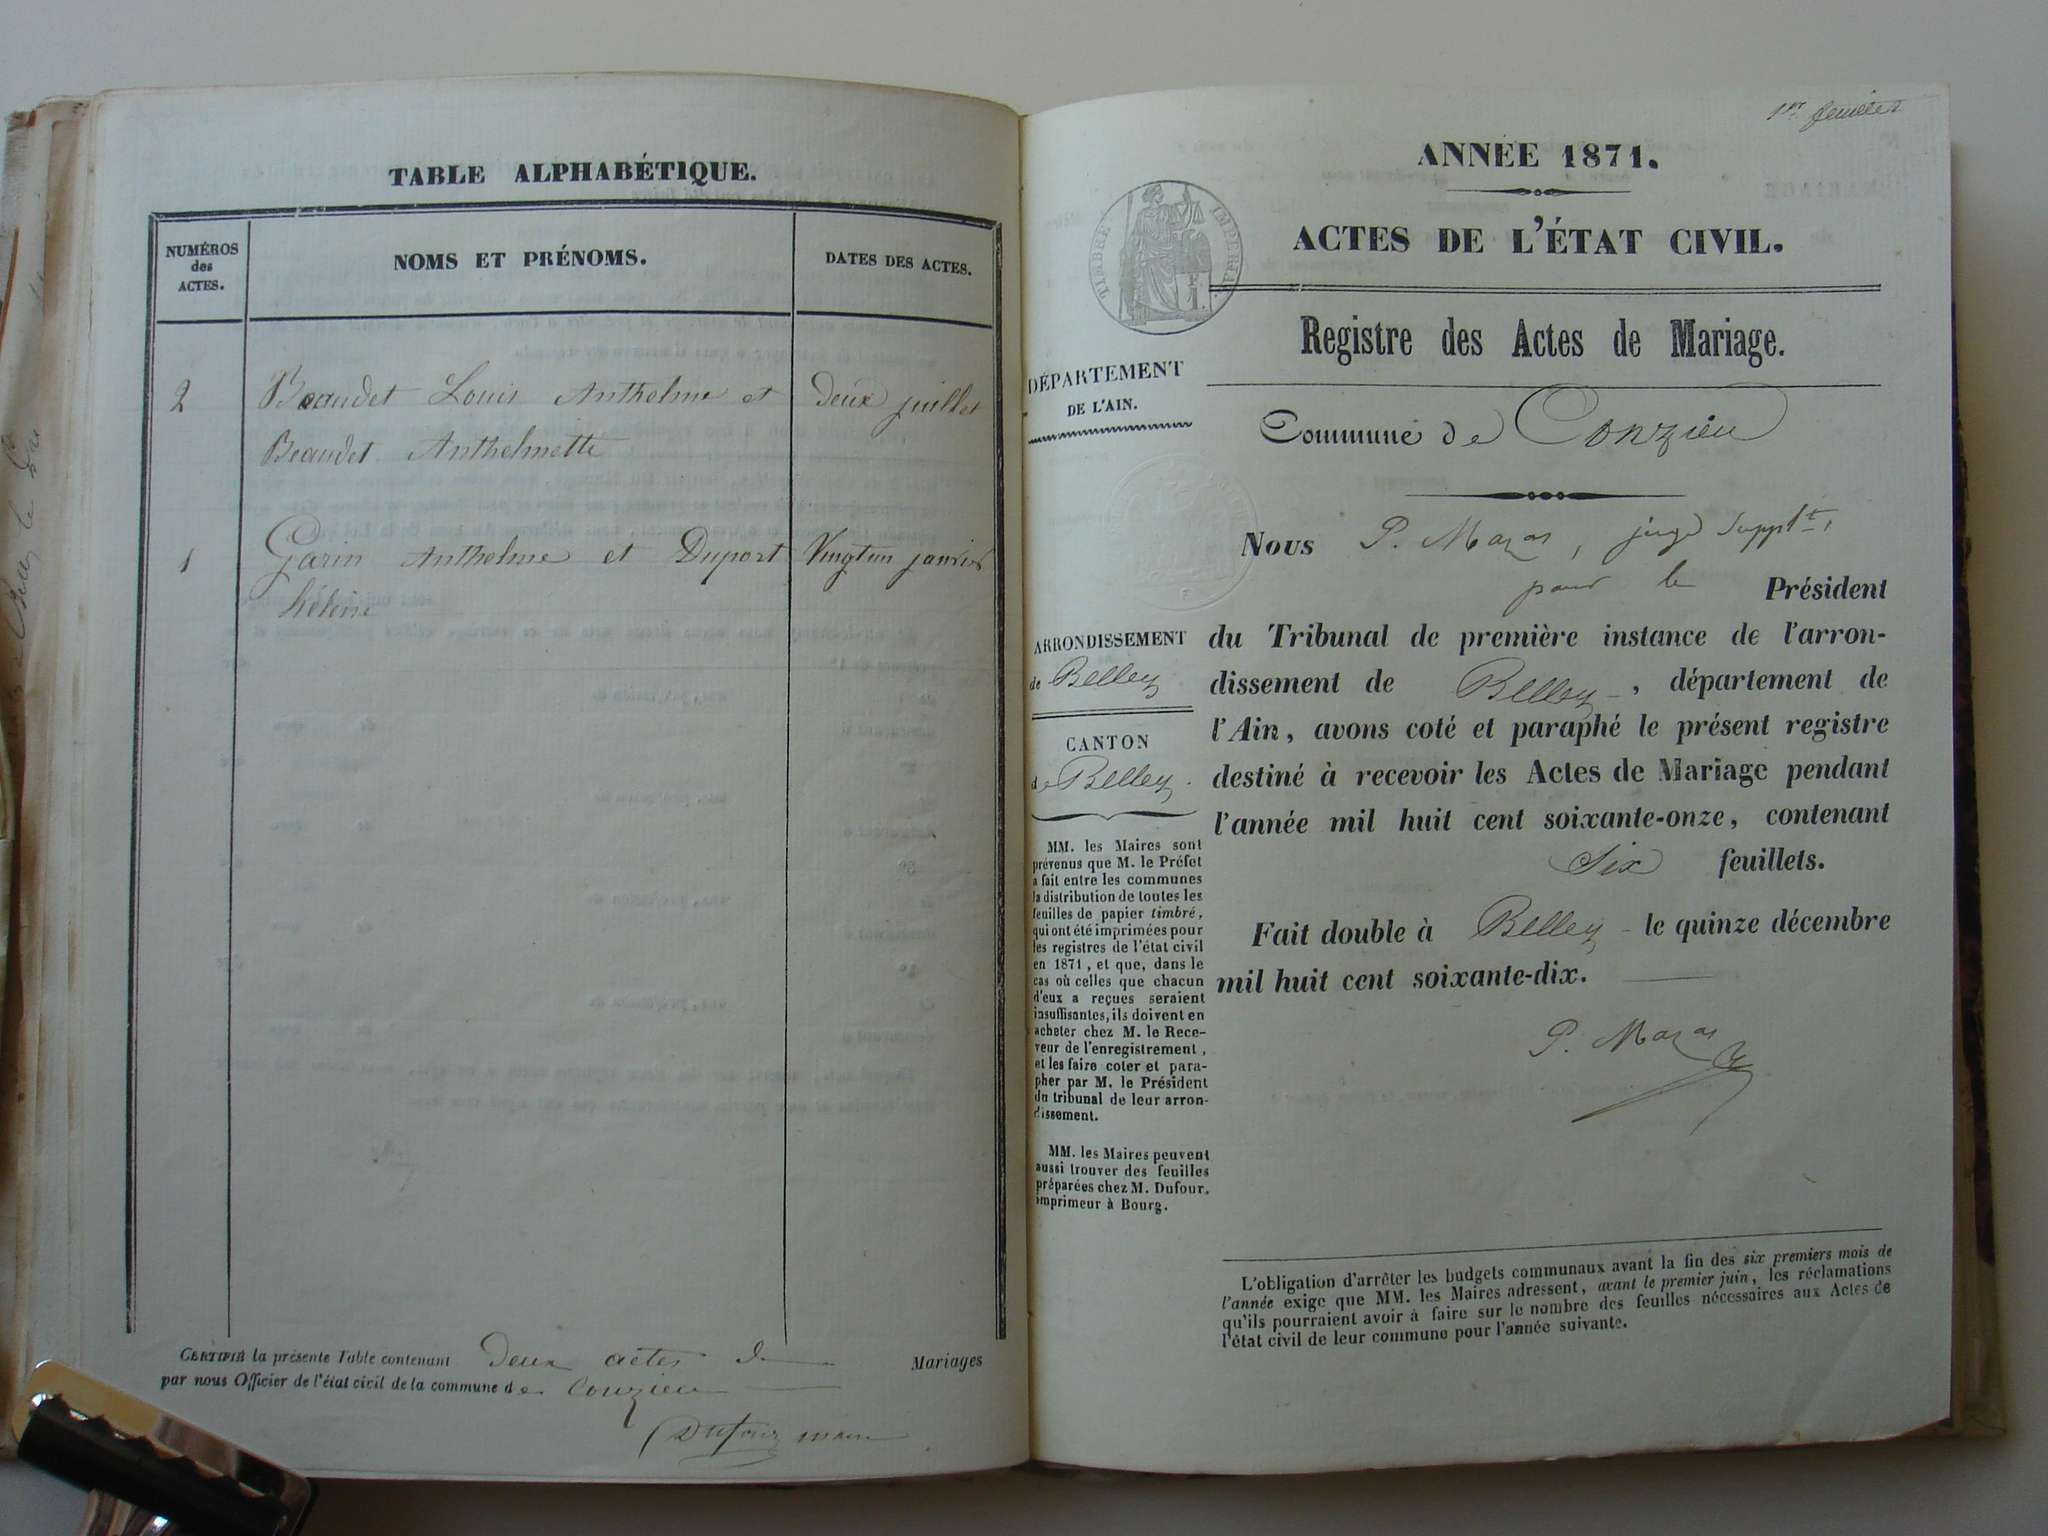 TABLE ALPHABÉTIQUE.
NUMÉROS
des
ACTES.
NOMS ET PRÉNOMS.
DATES DES ACTES.
2 Beaudet Louis Anthelme et deux juillet
Beaudet Anthelmette
1 Garin Anthelme et Duport Vingtun janvier
héloise
CERTIFIÉ la présente Table contenant deux actes de Mariages
par nous Officier de l'état civil de la commune de Conzieu
Dufour maire
1er feuillet
ANNÉE 1871.
TIMBRE IMPERIAL
ACTES DE L'ÉTAT CIVIL.
Registre des Actes de Mariage.
DÉPARTEMENT
DE L'AIN.
Commune de Conzieu
Nous P. Mazas, juge suppt,
pour le Président
du Tribunal de première instance de l'arron-
dissement de Belley, département de
l'Ain, avons coté et paraphé le présent registre
destiné à recevoir les Actes de Mariage pendant
l'année mil huit cent soixante-onze, contenant
Six feuillets.
Fait double à Belley le quinze décembre
mil huit cent soixante-dix.
P. Mazas
ARRONDISSEMENT
de Belley
CANTON
de Belley.
MM. les Maires sont
prévenus que M. le Préfet
a fait entre les communes
la distribution de toutes les
feuilles de papier timbré,
qui ont été imprimées pour
les registres de l'état civil
en 1871, et que, dans le
cas où celles que chacun
d'eux a reçues seraient
insuffisantes, ils doivent en
acheter chez M. le Rece-
veur de l'enregistrement,
et les faire coter et para-
pher par M. le Président
du tribunal de leur arron-
dissement.
MM. les Maires peuvent
aussi trouver des feuilles
préparées chez M. Dufour,
imprimeur à Bourg.
L'obligation d'arrêter les budgets communaux avant la fin des six premiers mois de
l'année exige que MM. les Maires adressent, avant le premier juin, les réclamations
qu'ils pourraient avoir à faire sur le nombre des feuilles nécessaires aux Actes de
l'état civil de leur commune pour l'année suivante.